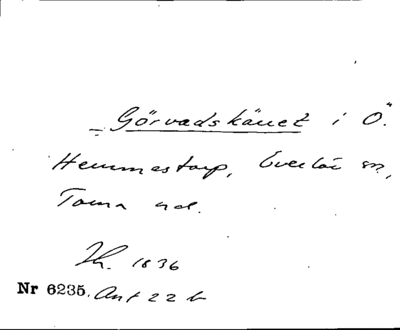 Görvadskärret i Ö.
Hemmestorp, Everlöv sn,
Torna hd.
Th. 1836
Nr 6235. Ant 22 b